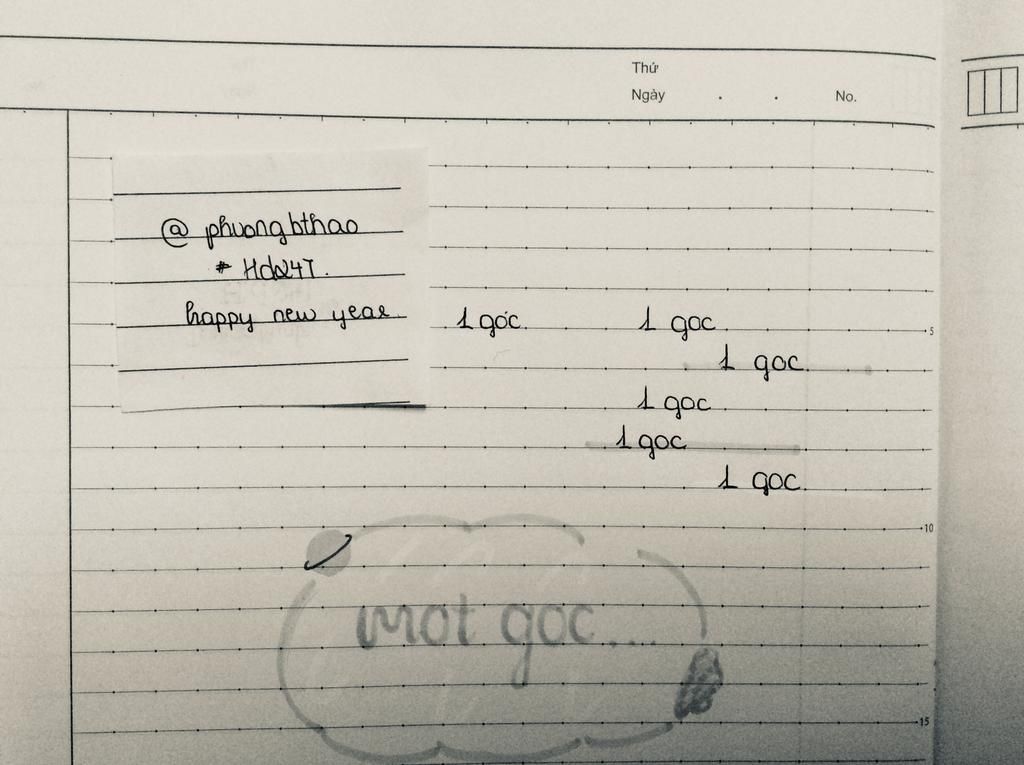 Thứ
Ngày . . No.
@ phuongbthao
# Hd247.
happy new year.
1 góc. 1 goc 5
1 goc
1 goc
1 goc
1 goc
10
mot goc...
15